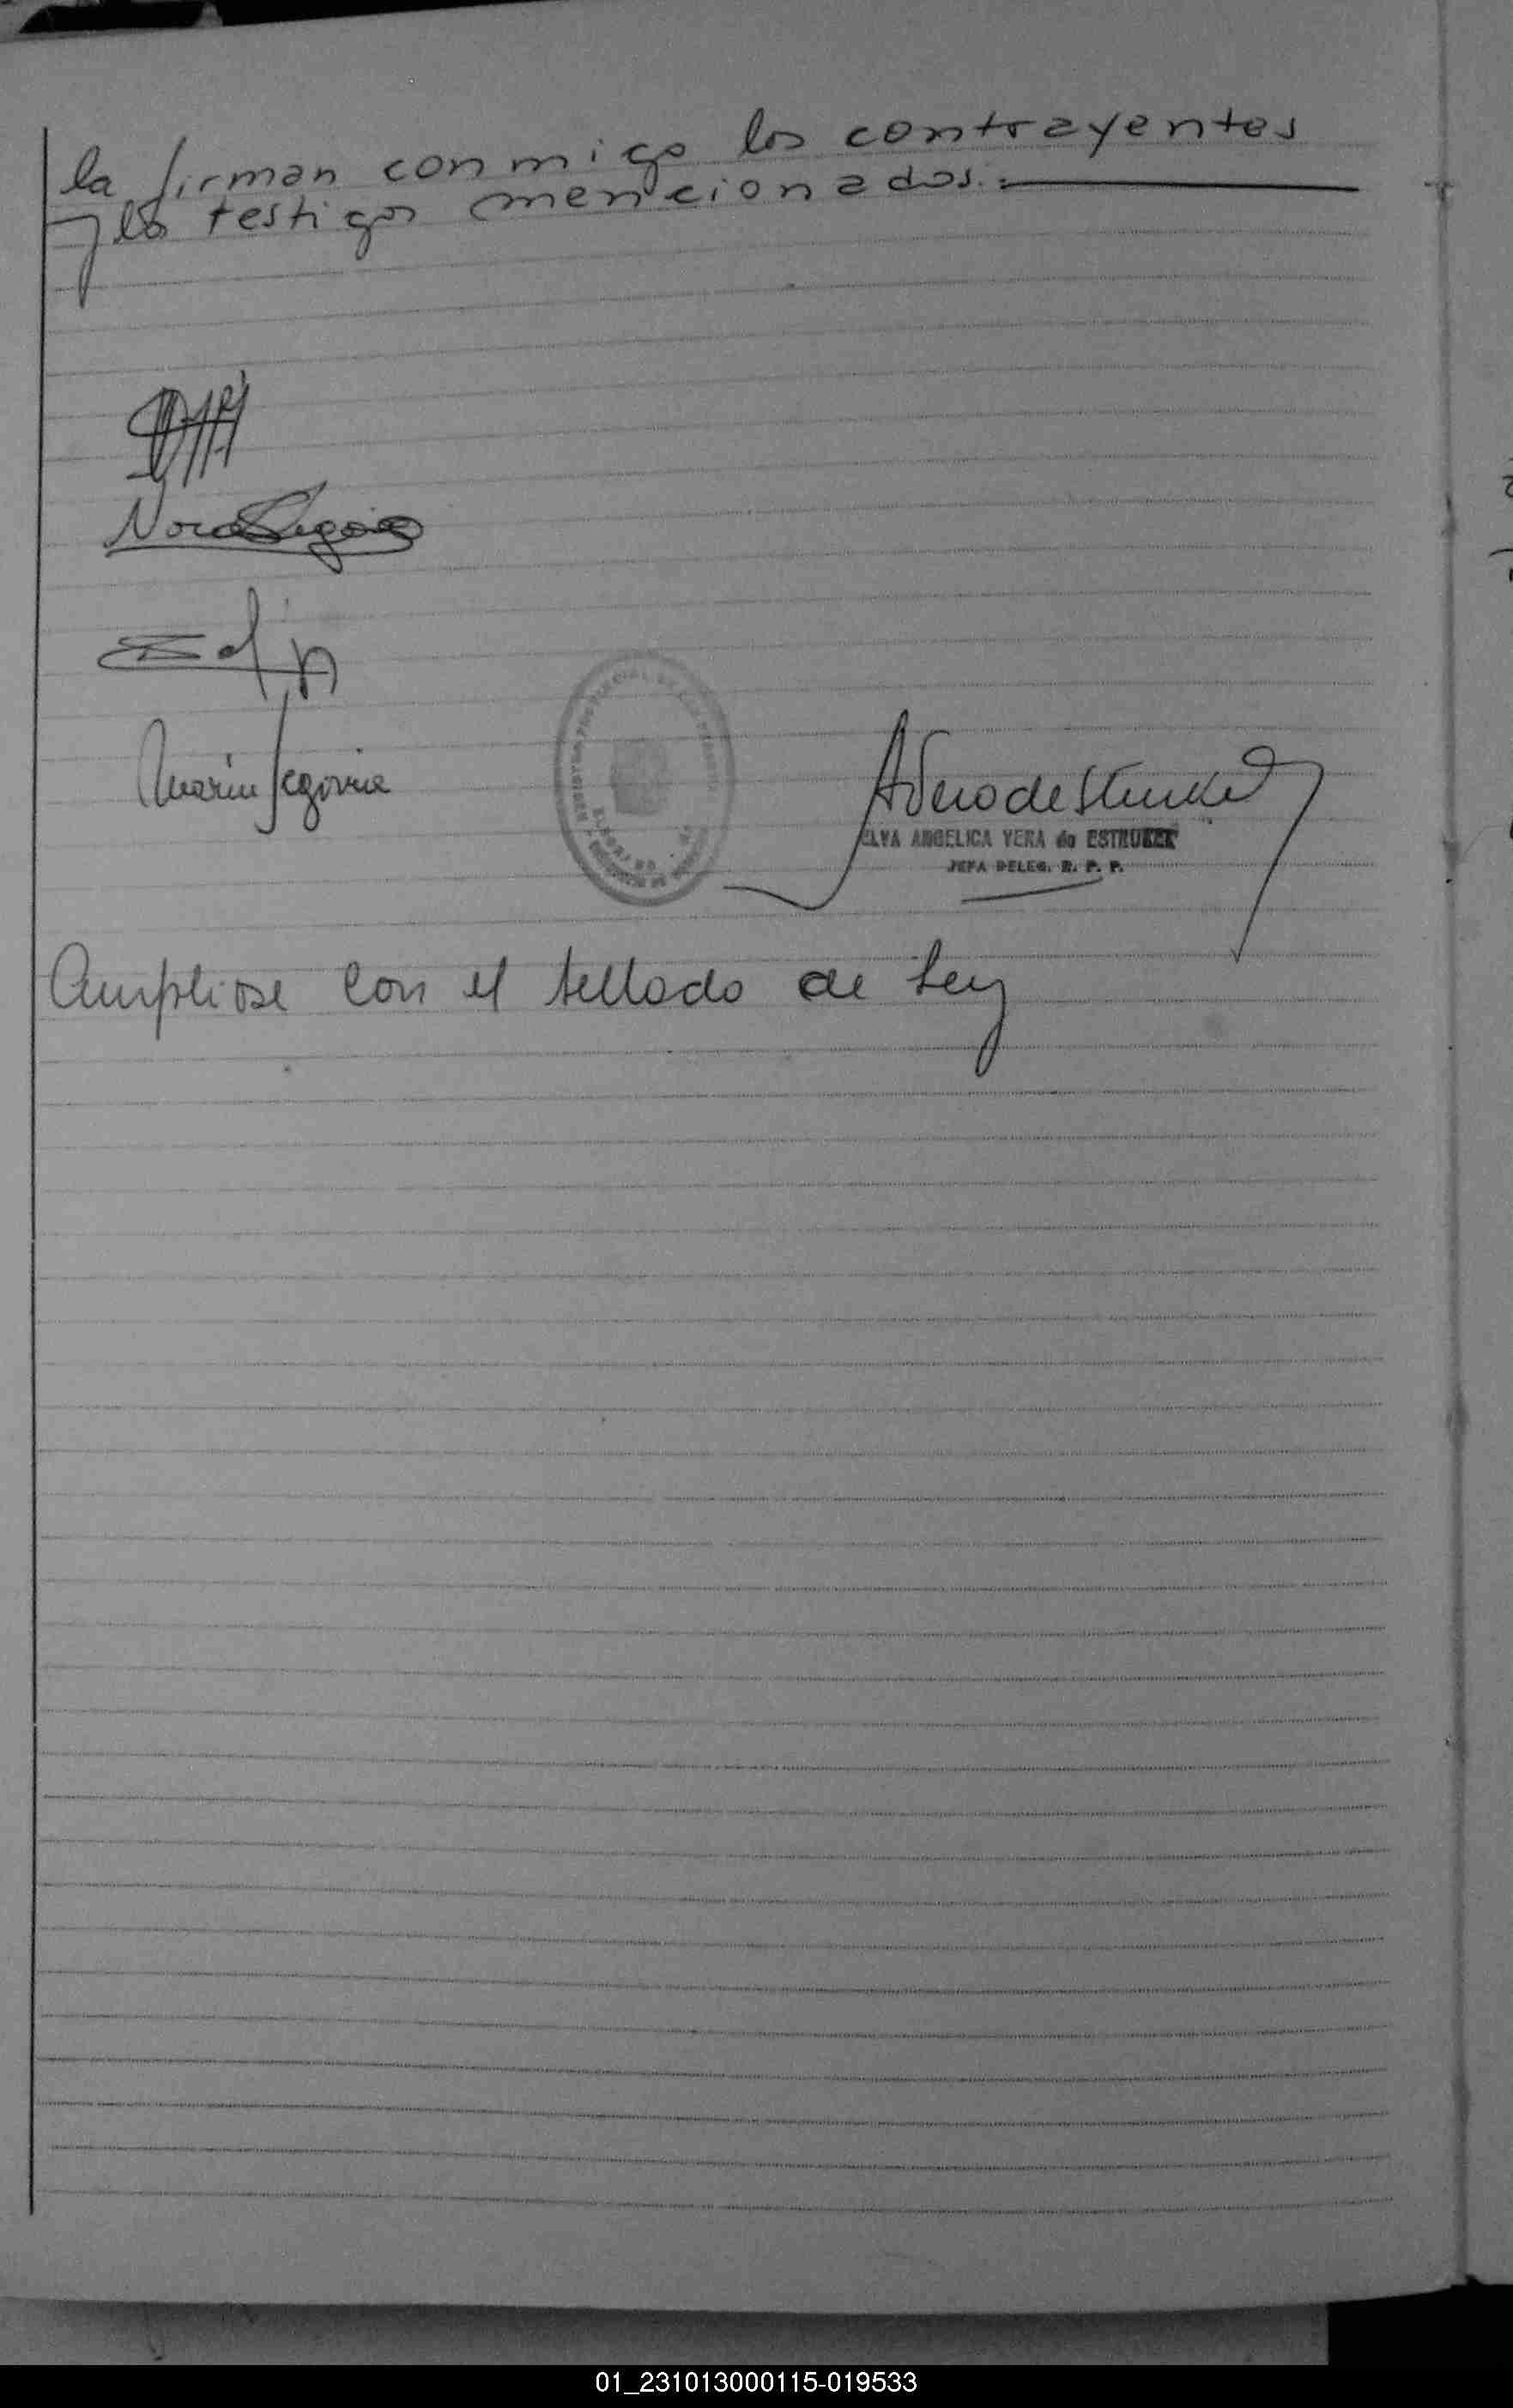 la firman conmigo los contrayentes
y los testigos mencionados.
Nora Segovia
Maria Segovia
AVera de Estruker
ELVA ANGELICA VERA de ESTRUKER
JEFA DELEG. R. P. P.
Ampliose con el sellado de Ley
01_231013000115-019533